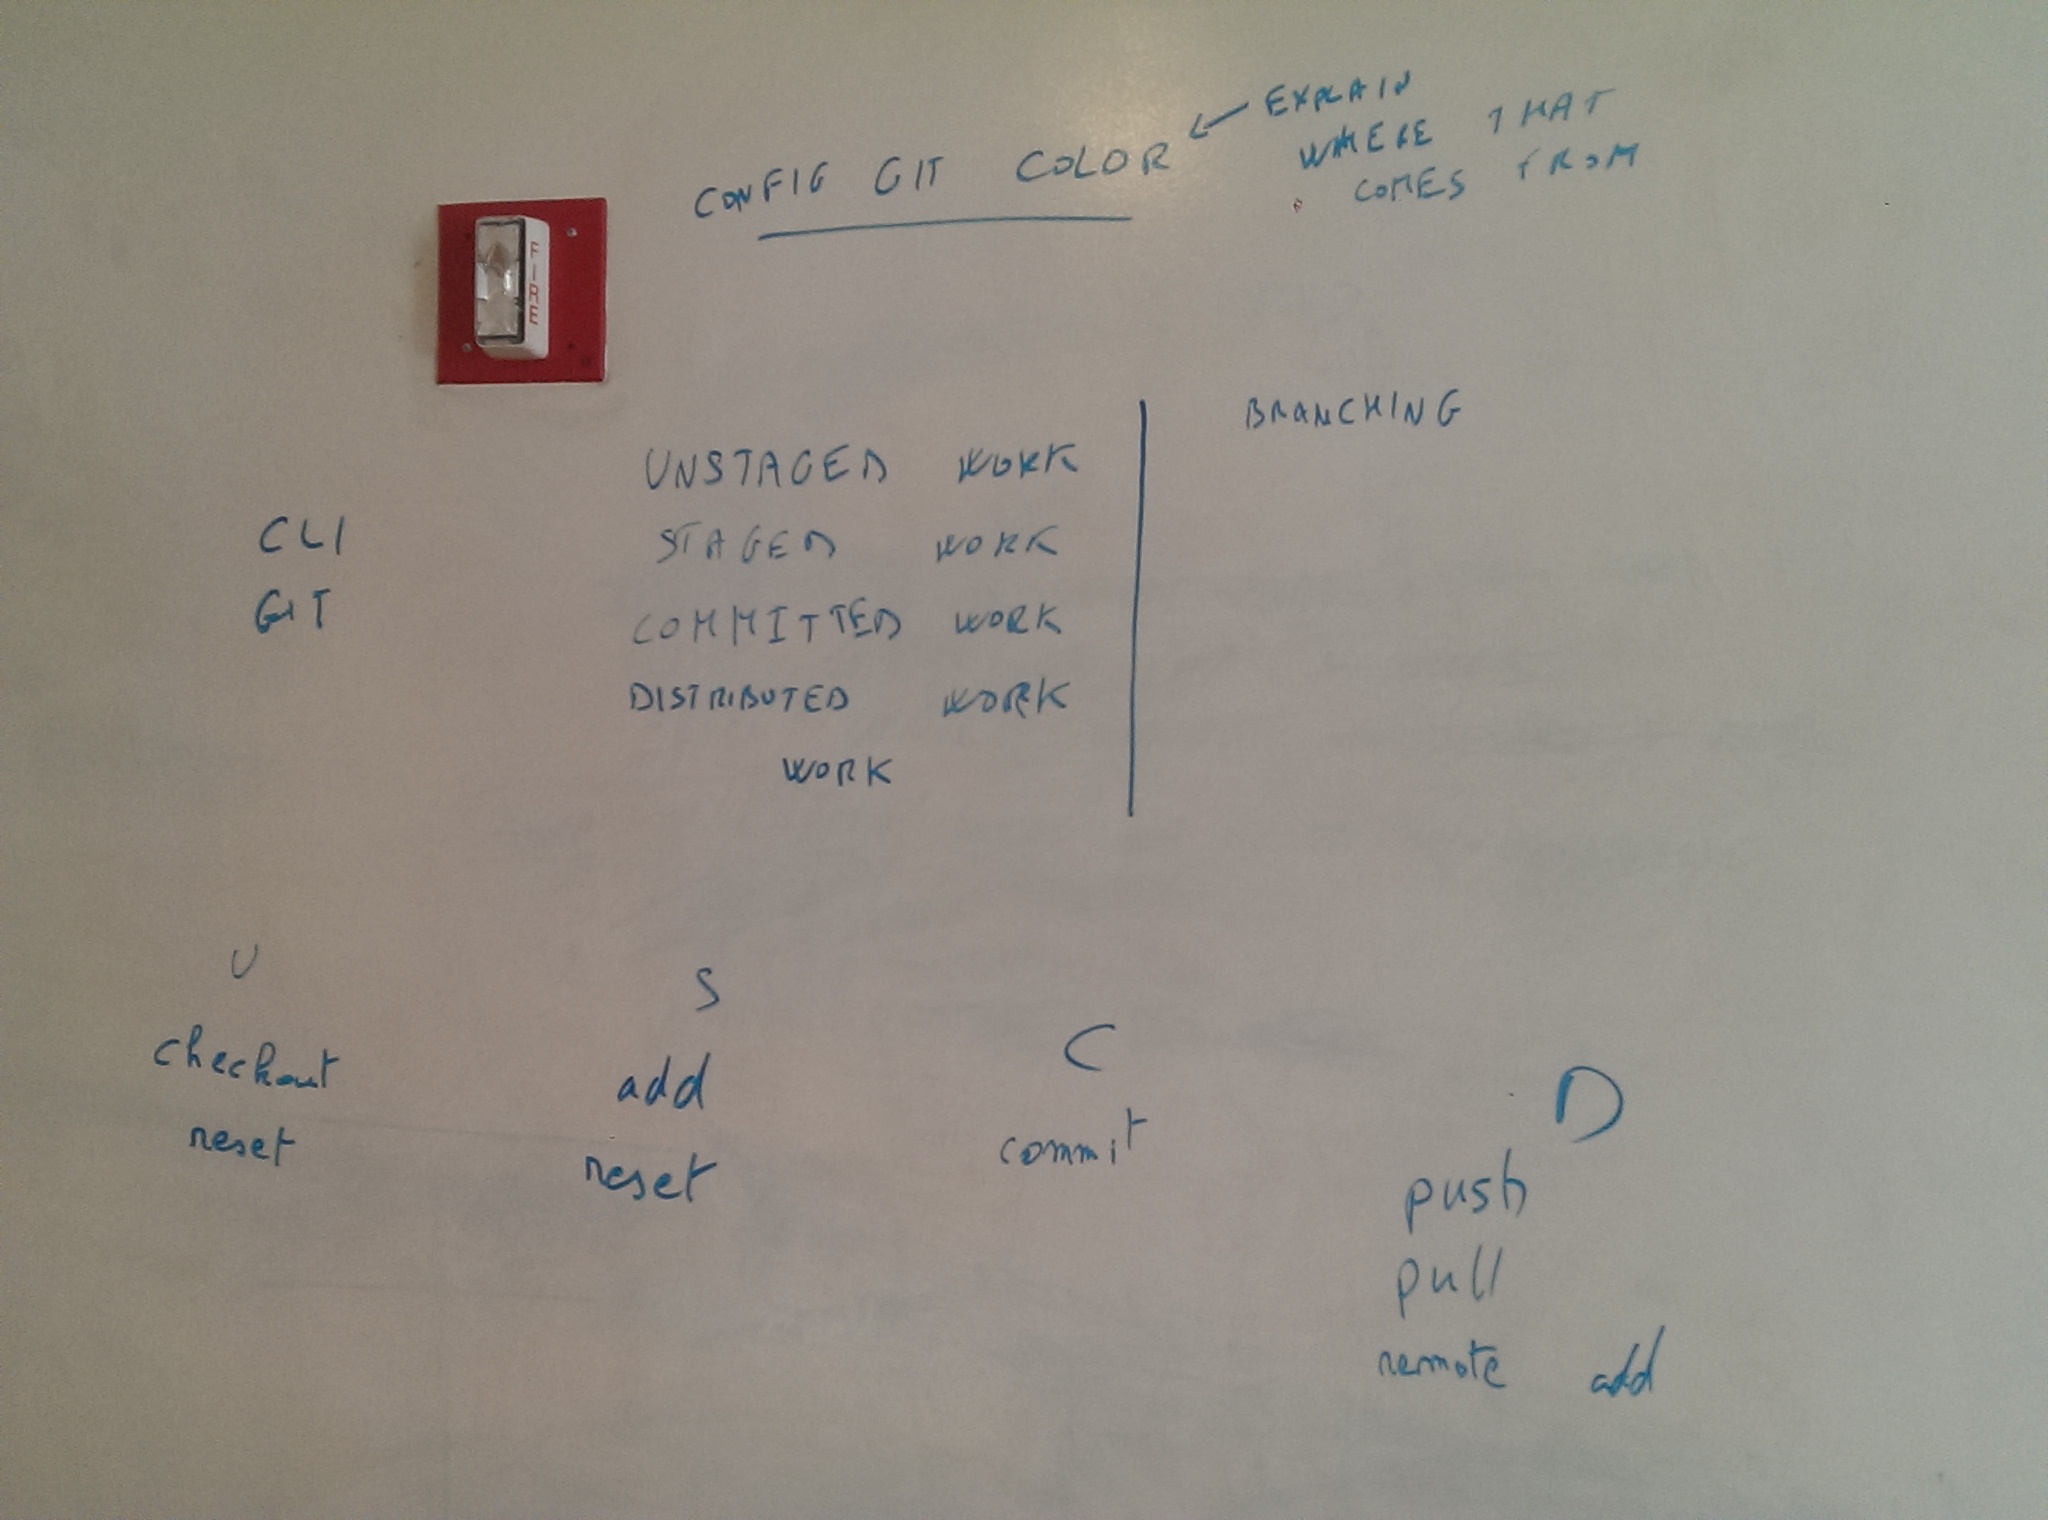 CONFIG GIT COLOR
EXPLAIN
WHERE THAT
COMES FROM
FIRE
CLI
GIT
UNSTAGED WORK
STAGED WORK
COMMITTED WORK
DISTRIBUTED WORK
WORK
BRANCHING
U
checkout
reset
S
add
reset
C
commit
D
push
pull
remote add